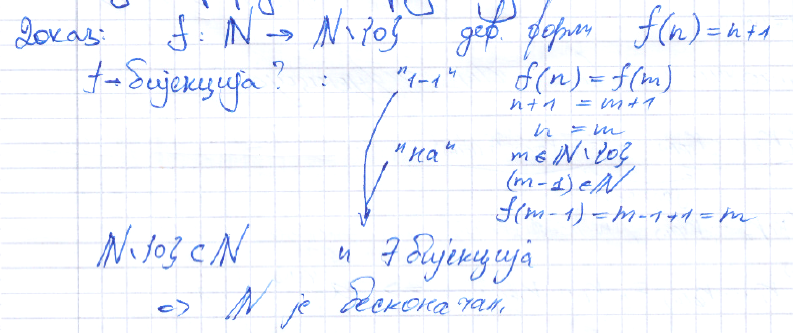 Доказ: f: N → N\{0} деф. форм f(n) = n+1
f → бијекција? : "1-1" f(n) = f(m)
n+1 = m+1
n = m
"на" m ∈ N\{0}
(m-1) ∈ N
f(m-1) = m-1+1 = m
N\{0} ⊂ N и ∃ бијекција
=> N је бесконачан.